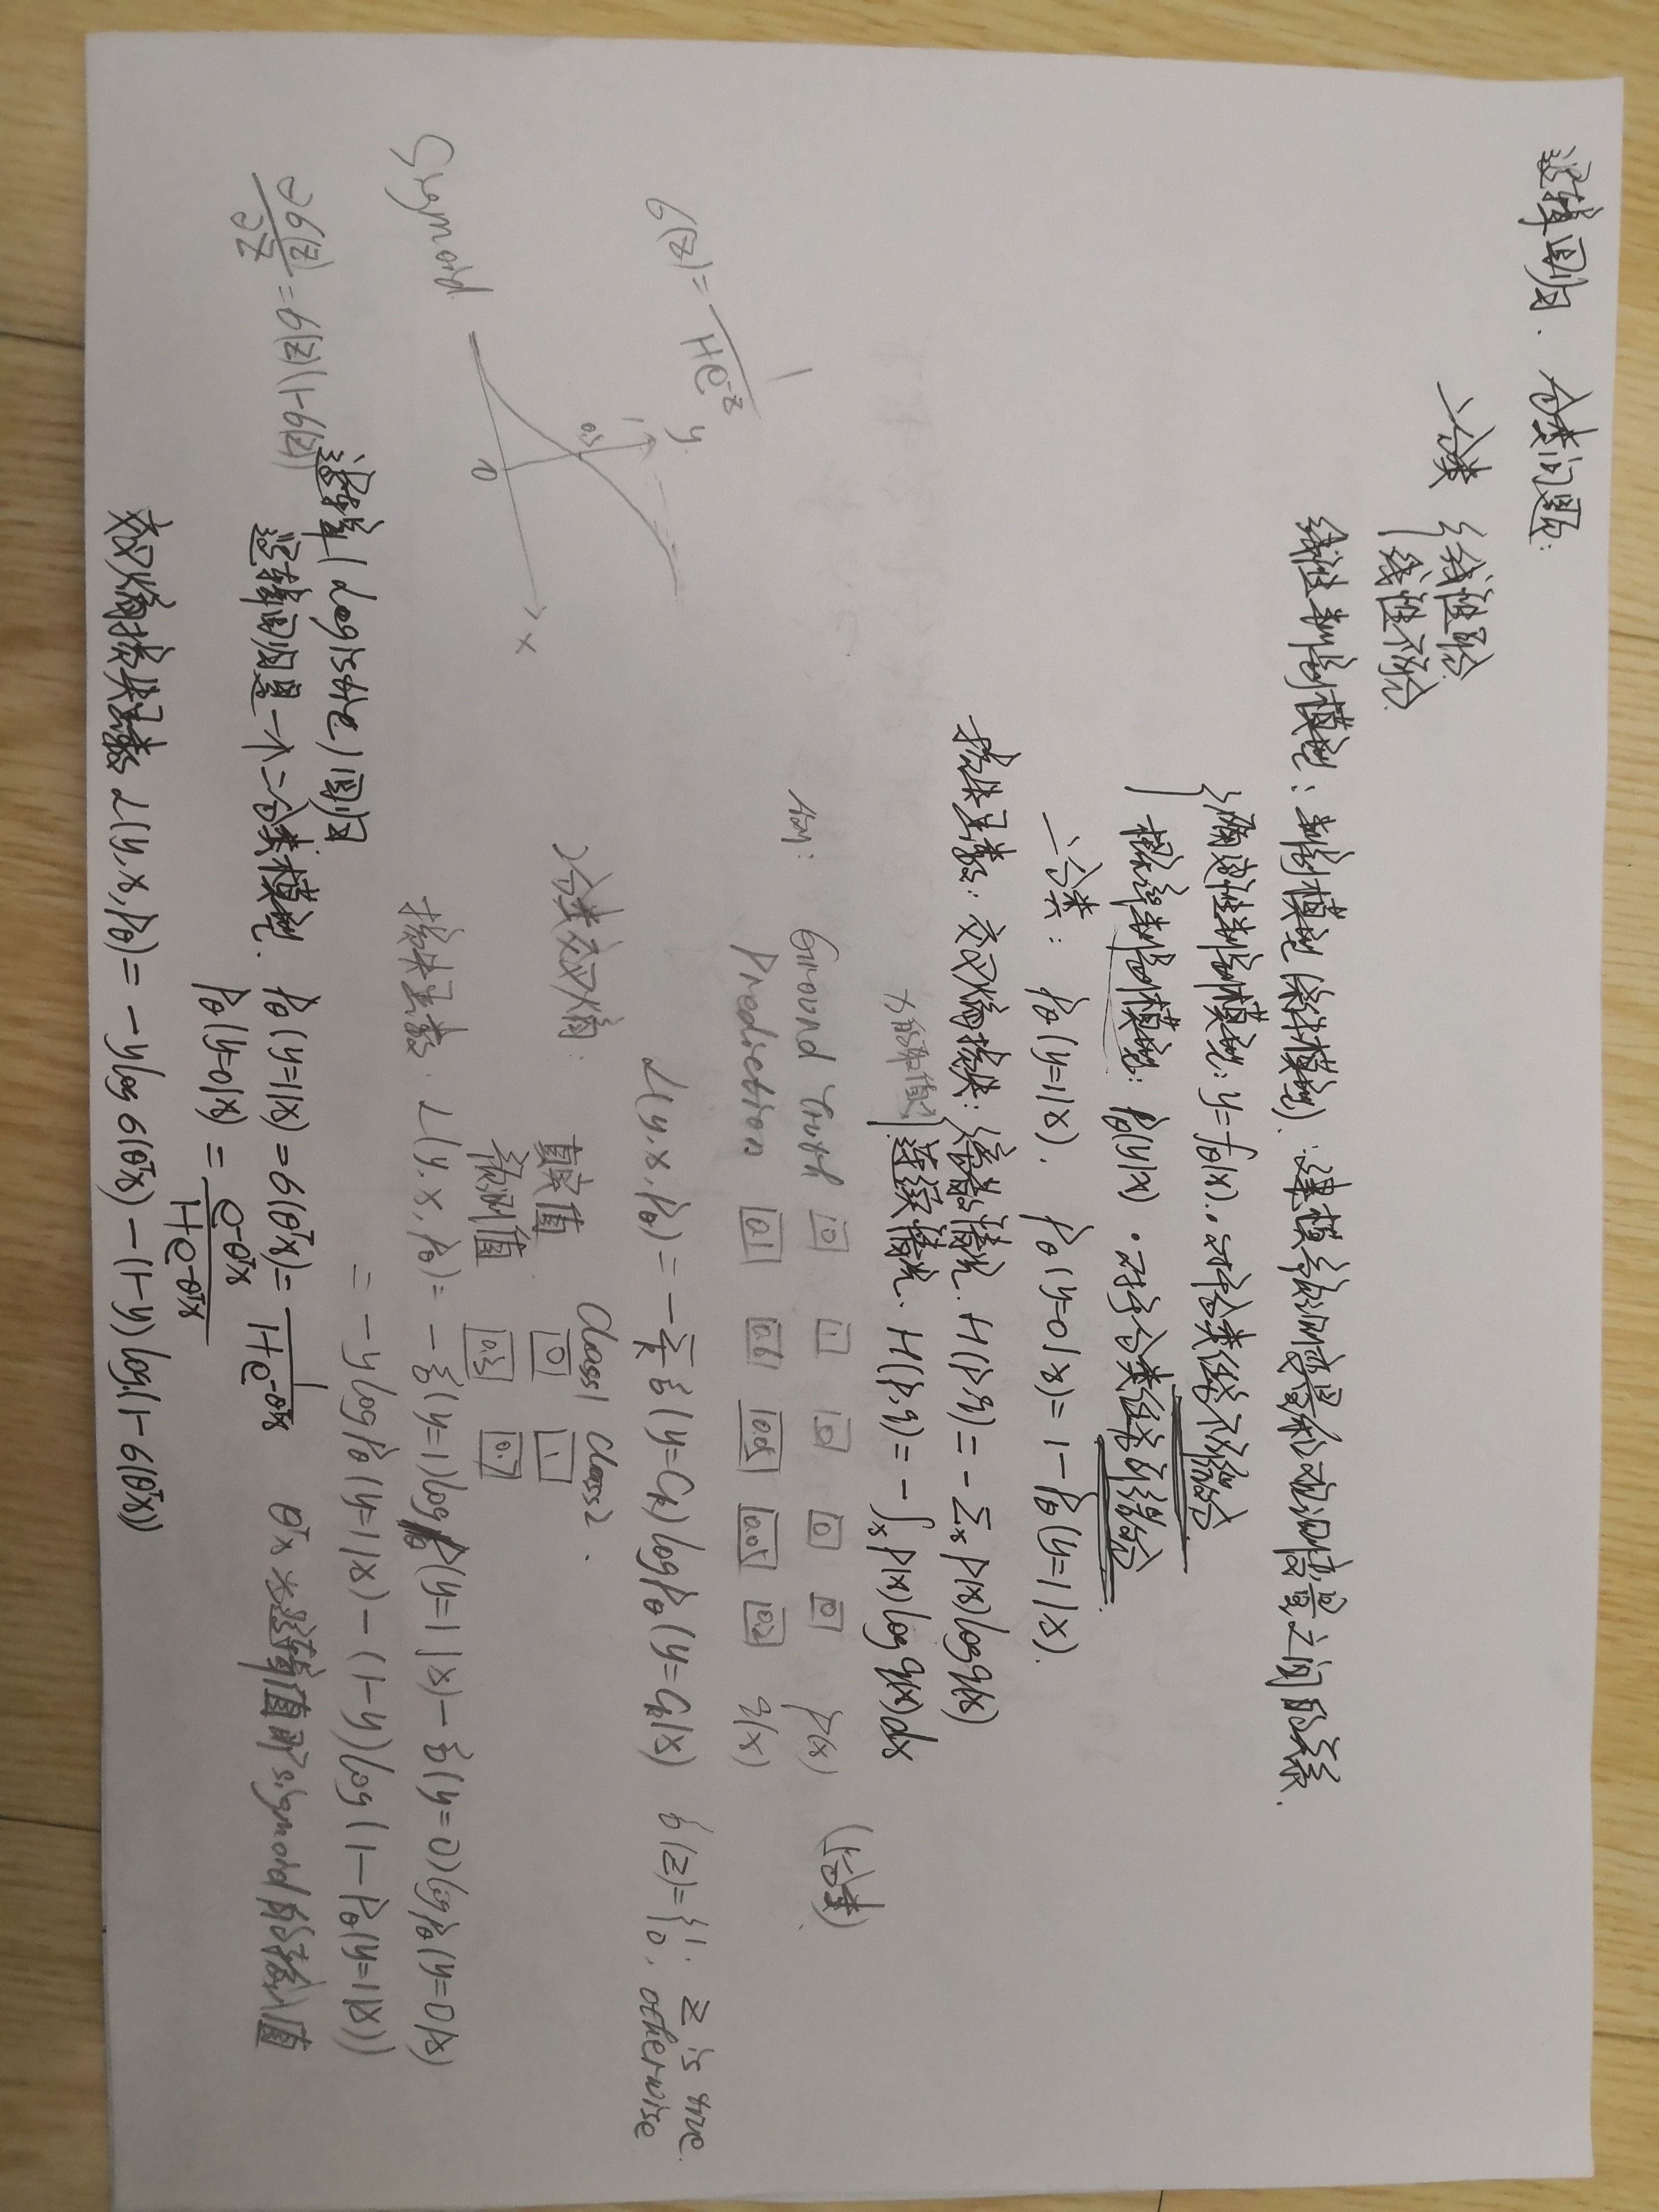 逻辑回归. 分类问题:
二分类 { 线性可分
线性不可分.
线性判别模型: 判别模型 (条件模型). 建模预测变量和观测变量之间的关系.
{ 确定性判别模型: y=fθ(x). 对于分类任务不可微分
概率判别模型: pθ(y|x) . 对于分类任务可微分
二分类: pθ(y=1|x). pθ(y=0|x)=1-pθ(y=1|x).
损失函数: 交叉熵损失: { 离散情况. H(p,q)=-Σx p(x)log q(x)
x的取值 连续情况. H(p,q)=-∫x p(x)log q(x)dx
如: Ground Truth 0 1 0 0 0 p(x) (5分类)
Prediction 0.1 0.6 0.05 0.05 0.2 q(x)
L(y,x,pθ)=-Σk δ(y=Ck)logpθ(y=Ck|x) δ(z)={1, z is true
0, otherwise
2分类交叉熵:
class1 class2.
真实值 0 1
预测值 0.3 0.7
损失函数. L(y,x,pθ)=-δ(y=1)logpθ(y=1|x)-δ(y=0)logpθ(y=0|x)
=-ylogpθ(y=1|x)-(1-y)log(1-pθ(y=1|x))
σ(z)=1/1+e^-z
y
1
0.5
0
x
Sigmoid
∂σ(z)/∂z=σ(z)(1-σ(z))
逻辑(Logistic)回归
逻辑回归是一个二分类模型. pθ(y=1|x)=σ(θᵀx)=1/1+e^-θᵀx θᵀx 为逻辑值即sigmoid的输入值
pθ(y=0|x)=e^-θᵀx/1+e^-θᵀx
交叉熵损失函数 L(y,x,pθ)=-ylogσ(θᵀx)-(1-y)log(1-σ(θᵀx))